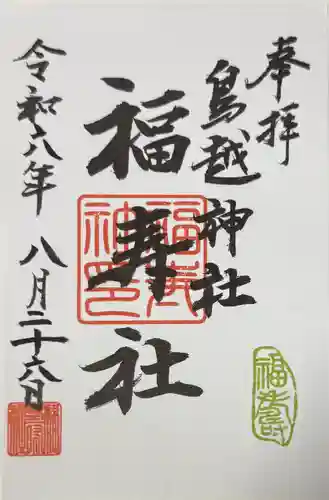 奉拝
鳥越神社
福寿社
令和六年八月二十六日
福寿